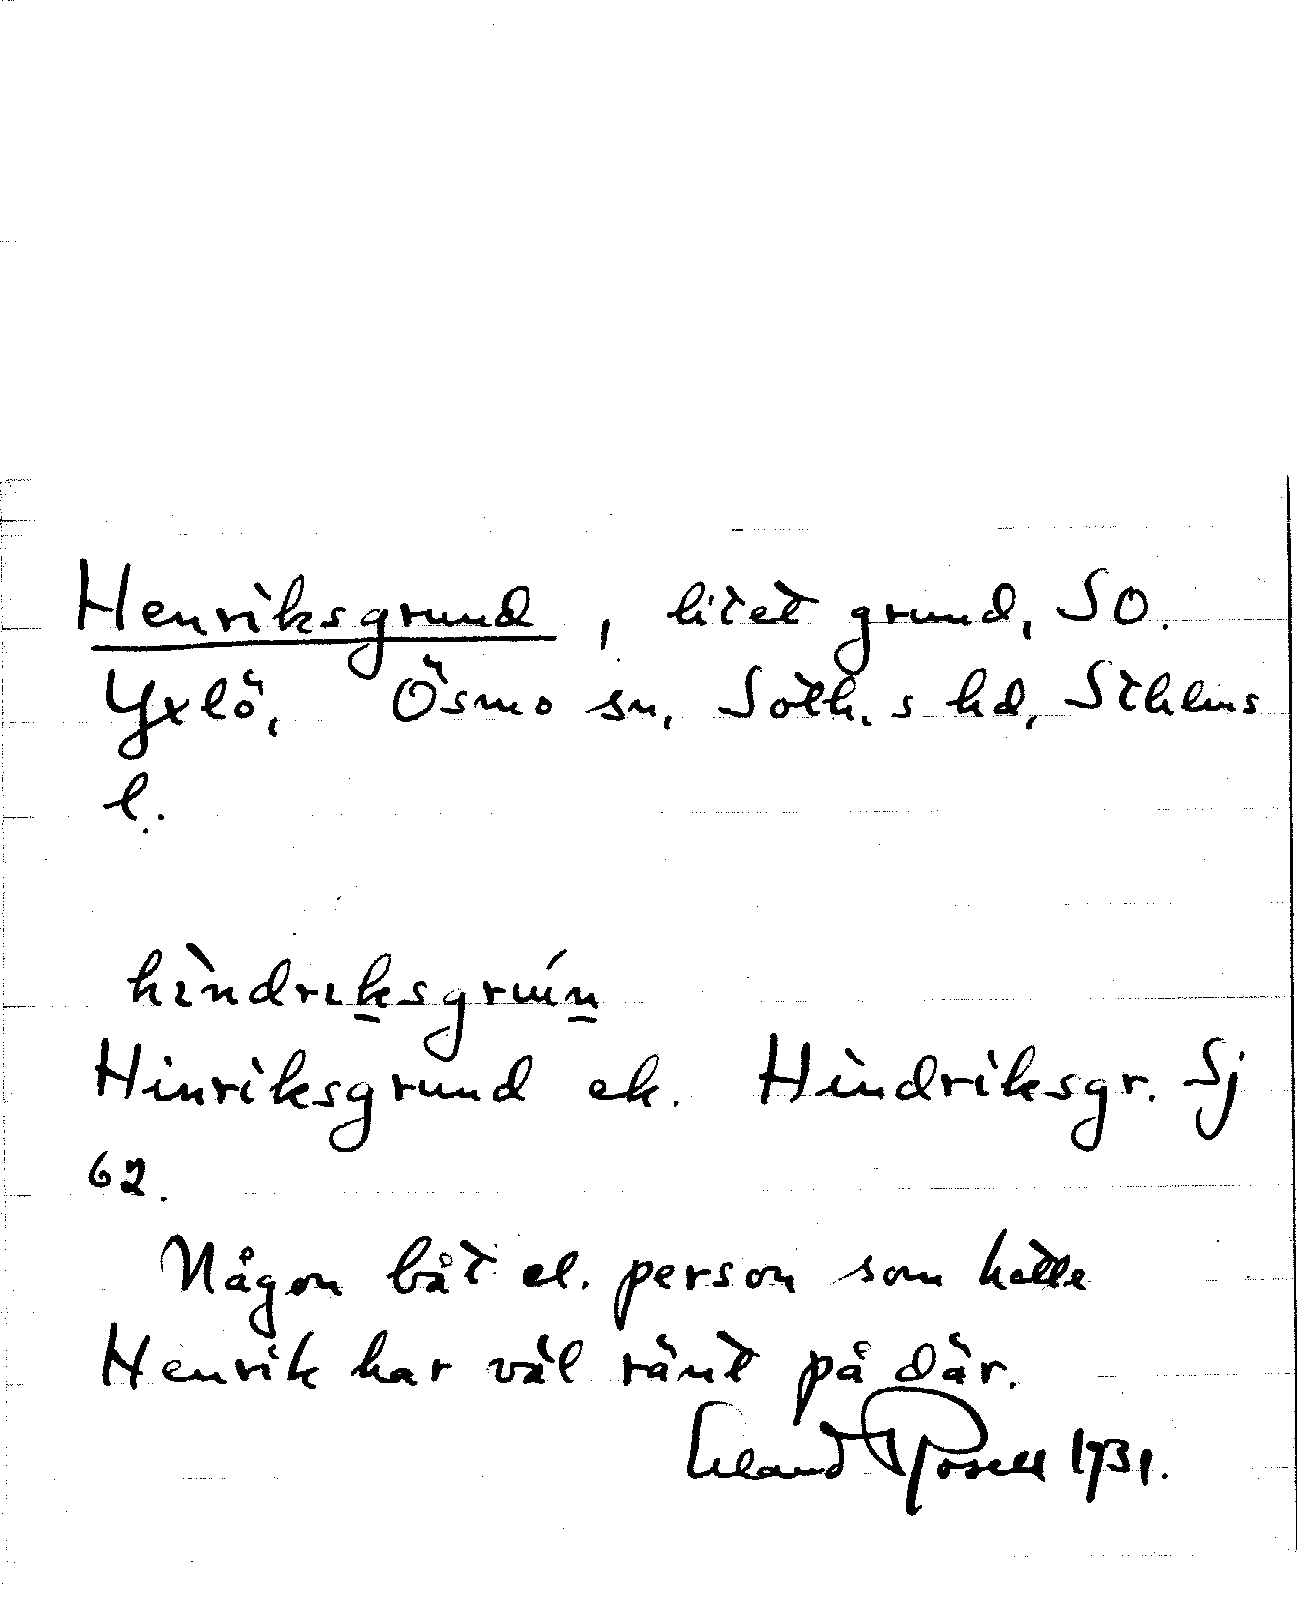 Henriksgrund, litet grund, SO.
Yxlö, Ösmo sn, Soth.s hd, Sthlms
l.
hìndriksgruín
Hinriksgrund ek. Hindriksgr. Sj
62.
Någon båt el. person som hette
Henrik har väl ränt på där.
Erland Rosell 1931.